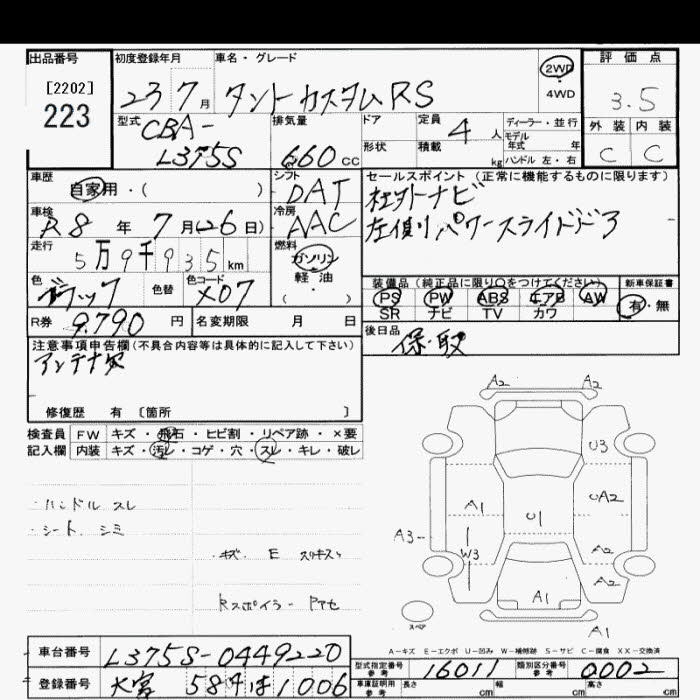 出品番号 初度登録年月 車名・グレード 評価点
[2202]
223
23 7月 タントカスタムRS 2WD 4WD 3.5
型式 CBA-L375S 排気量 660cc ドア 形状 定員 4人 積載 kg ディーラー・並行 モデル年式 年 ハンドル 左・右 外装 内装 C C
車歴 自家用・( ) シフト DAT セールスポイント (正常に機能するものに限ります)
車検 R8年 7月(26日) 冷房 AAC 社外ナビ
左側リパワースライドドア
走行 5万9千935km 燃料 ガソリン 軽・油 ・( )
色 ブラック 色替 色コード X07 装備品(純正品に限り○をつけてください) 新車保証書
PS PW ABS エアB AW 有・無
SR ナビ TV カワ
R券 9.790円 名変期限 月 日 後日品 保・取
注意事項申告欄(不具合内容等は具体的に記入して下さい)
アンテナ欠
修復歴 有 〔箇所 〕
検査員 FW キズ・飛石・ヒビ割・リペア跡・×要
記入欄 内装 キズ・汚レ・コゲ・穴・スレ・キレ・破レ
・ハンドル スレ
・シート シミ
・キズ E スリキズ
Rスポイラー
A2 A2
U3
A1 U1 UA2
A3 W3 A2
A2
A1
スペア A1
A-キズ E-エクボ U-凹み W-補修跡 S-サビ C-腐食 XX-交換済
車台番号 L375S-0449220 型式指定番号 参考 16011 類別区分番号 参考 0002
登録番号 大宮 584 は 1006 車庫証明用 参考 長さ cm 幅 cm 高さ cm